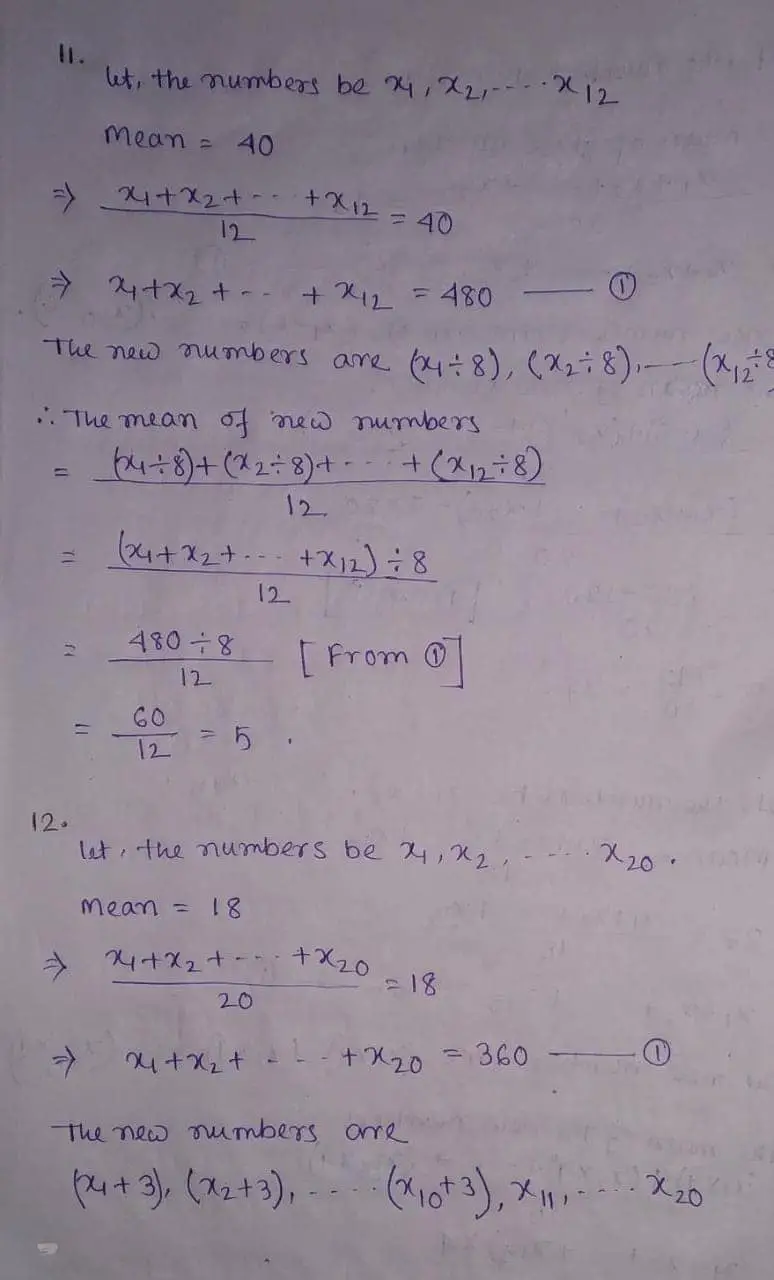 11.
let, the numbers be x₁, x₂,---- x₁₂
Mean = 40
⇒ (x₁+x₂+--- +x₁₂)/12 = 40
⇒ x₁+x₂ + -- + x₁₂ = 480 —— ①
The new numbers are (x₁÷8), (x₂÷8),—--(x₁₂÷8
∴ The mean of new numbers
= ((x₁÷8)+(x₂÷8)+--- +(x₁₂÷8))/12
= ((x₁+x₂+--- +x₁₂)÷8)/12
= (480÷8)/12 [From ①]
= 60/12 = 5.
12.
let, the numbers be x₁, x₂, ---- x₂₀.
Mean = 18
⇒ (x₁+x₂+---- +x₂₀)/20 = 18
⇒ x₁+x₂+ - - - +x₂₀ = 360 —— ①
The new numbers are
(x₁+3), (x₂+3), ----- (x₁₀+3), x₁₁,---- x₂₀